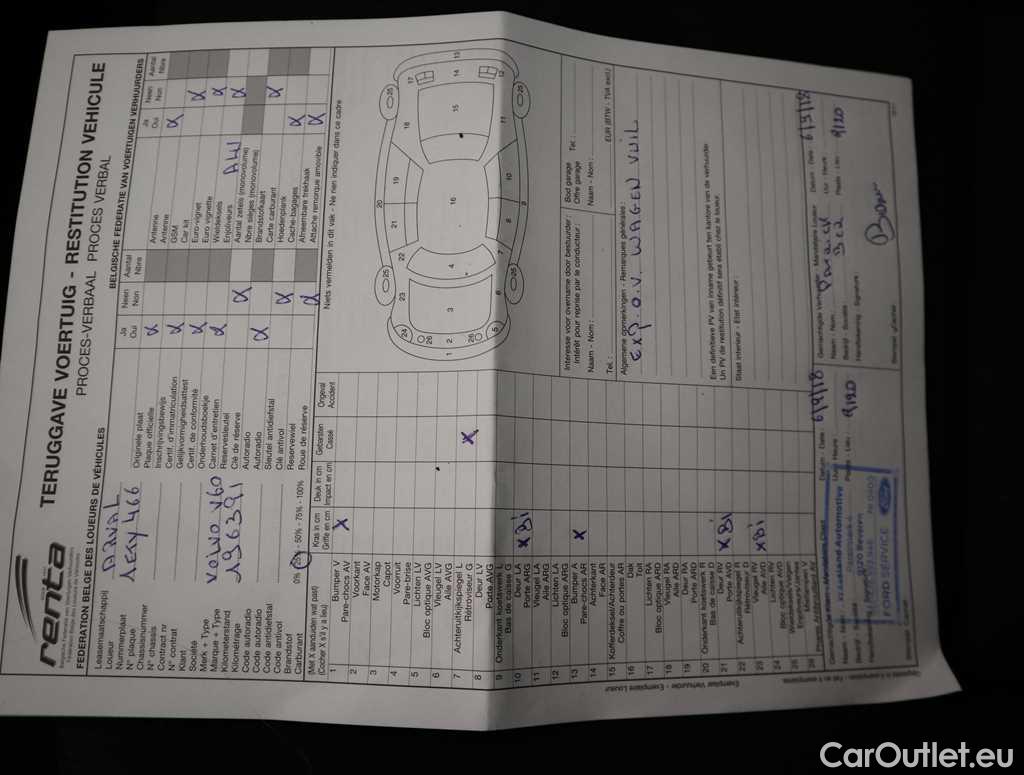 renta
FEDERATION BELGE DES LOUEURS DE VÉHICULES
TERUGGAVE VOERTUIG - RESTITUTION VEHICULE
PROCES-VERBAAL PROCES VERBAL
BELGISCHE FEDERATIE VAN VOERTUIGEN VERHUURDERS
Leasemaatschappij
Loueur
ARVAL
Nummerplaat
N° plaque
1EKY466
Chassisnummer
N° chassis
Contract nr
N° contrat
Klant
Société
Merk + Type
Marque + Type
VOLVO V60
Kilometerstand
Kilométrage
196391
Code autoradio
Code autoradio
Code antidiefstal
Code antivol
Brandstof
Carburant
0% - 25% - 50% - 75% - 100%
Ja Neen Aantal
Oui Non Nbre
Originele plaat
Plaque officielle
Inschrijvingsbewijs
Certif. d'immatriculation
Gelijkvormigheidsattest
Certif. de conformité
Onderhoudsboekje
Carnet d'entretien
Reservesleutel
Clé de réserve
Autoradio
Autoradio
Sleutel antidiefstal
Clé antivol
Reservewiel
Roue de réserve
Ja Neen Aantal
Oui Non Nbre
Antenne
Antenne
GSM
Car kit
Euro-vignet
Euro vignette
Wieldeksels
Enjoliveurs
ALU
Aantal zetels (monovolume)
Nbre sièges (monovolume)
Brandstofkaart
Carte carburant
Hoedenplank
Cache-bagages
Afneembare trekhaak
Attache remorque amovible
(Met X aanduiden wat past)
(Cocher X s'il y a lieu)
Kras in cm
Griffe en cm
Deuk in cm
Impact en cm
Gebarsten
Cassé
Origineel
Accident
1 Bumper V
Pare-chocs AV X
2 Voorkant
Face AV
3 Motorkap
Capot
4 Voorruit
Pare-brise
5 Lichten LV
Bloc optique AVG
6 Vleugel LV
Aile AVG
7 Achteruitkijkspiegel L
Rétroviseur G X
8 Deur LV
Porte AVG
9 Onderkant koetswerk L
Bas de caisse G
10 Deur LA
Porte ARG
11 Vleugel LA
Aile ARG
12 Lichten LA
Bloc optique ARG
13 Bumper A
Pare-chocs AR X
14 Achterkant
Face AR
15 Kofferdeksel/Achterdeur
Coffre ou portes AR
16 Dak
Toit
17 Lichten RA
Bloc optique ARD
18 Vleugel RA
Aile ARD
19 Deur RA
Porte ARD
20 Onderkant koetswerk R
Bas de caisse D
21 Deur RV
Porte AVD
22 Achteruitkijkspiegel R
Rétroviseur D
23 Vleugel RV
Aile AVD
24 Lichten RV
Bloc optique AVD
25
26
Niets vermelden in dit vak - Ne rien indiquer dans ce cadre
Interesse voor overname door bestuurder:
Intérêt pour reprise par le conducteur :
Naam - Nom :
Tel. :
Bod garage
Offre garage
Tel :
Naam - Nom :
EUR (BTW - TVA excl.)
Algemene opmerkingen - Remarques générales :
WAGEN VUIL
Een definitieve PV van inname gebeurt ten kantore van de verhuurder.
Un PV de restitution définitif sera établi chez le loueur.
Staat interieur - Etat intérieur :
Datum - Date :
Uur - Heure :
Plaats - Lieu :
9120
Gemachtigde Verhuurder - Mandataire Loueur
Naam - Nom :
Bedrijf - Société
Handtekening - Signature :
Datum - Date : 6/3/18
Uur - Heure :
Plaats - Lieu : 9120
Waasland Automotive
9120 Beveren
FORD SERVICE
Exemplaar Verhuurder - Exemplaire Loueur
CarOutlet.eu